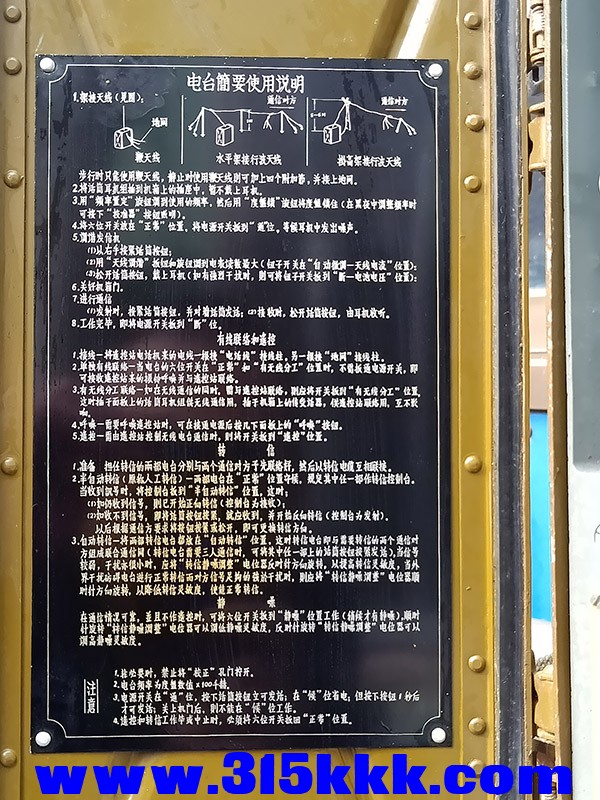 电台简要使用说明
1.架挂天线(见图):
通信对方
5-6M
通信对方
地网
鞭天线
水平架接行波天线
树高架接行波天线
步行时只需使用鞭天线,静止时使用鞭天线则可加上四个附加节,并接上地网。
2.将话筒耳机组插到机箱上的插座中,暂不戴上耳机。
3.用“频率置定”旋钮调到使用的频率,然后用“度盘锁”旋钮将度盘锁住(在黑夜中调整频率时
可按下“校准器”按钮照明)。
4.将六位开关放在“正常”位置,将电源开关扳到“通”位。等候耳机中发出噪声。
5.调谐发信机
(1)从右手按紧话筒按钮;
(2)用“天线调谐”按钮和旋钮调到电表读数最大(钮子开关在“自动微调一天线电流”位置);
(3)松开话筒按钮,戴上耳机(如有强烈干扰时,则可将钮子开关扳到“断一电池电压”位置);
6.关好机箱门。
7.进行通信
(1)发射时,按紧话筒按钮,并对着话筒发话;(2)接收时,松开话筒按钮,由耳机收听。
8.工作完毕,即将电源开关扳到“断”位。
有线联络和遥控
1.接线一将遥控站电话机来的电线一根接“电话线”接线柱,另一根接“地网”接线柱。
2.单独有线联络一当电台的六位开关在“正常”和“有无线分工”位置时,不需扳通电源开关,即
可接收遥控站来的振铃呼唤并与遥控站联络。
3.有无线分工联络一如在无线通信的同时,需与遥控站联络,则应将开关扳到“有无线分工”位置,
这时插于面板上的话筒耳机组供无线通信用,插于机箱上的
4.呼唤一需要呼唤遥控站时,可在接通电源后按几下面板上的“呼唤”按钮。
5.遥控一需由遥控站控制无线电台通信时,则将开关扳到“遥控”位置。
转 信
1.准备 担任转信的两部电台分别与两个通信对方于先联络好,然后以转信电缆互相联接。
2.半自动转信(原称人工转信)一两部电台在“正常”位置守候,规定其中任一部作转信控制台。
当收到讯号时,将控制台扳到“半自动转信”位置,这时:
(1)如仍收到信号,则已开始正向转信(控制台为接收);
(2)如收不到信号,即将话筒按钮按紧,就应收到,并开始反向转信(控制台为发射)。
以后根据通信方要求将按钮按紧或松开,即可更换转信方向。
3.自动转信一将两部转信电台都放在“自动转信”位置,这时转信电台即与需要转信的两个通信对
方组成联合通信网(转信电台需要三人通信时,可将其中任一部上的话筒按钮按紧发话),当信号
较弱,干扰亦很小时,应将“转信静噪调整”电位器反时针方向旋转,以提高转信灵敏度,当外
界干扰妨碍电台进行正常转信而对方信号足够的强于干扰时,则应将“转信静噪调整”电位器顺
时针方向旋转,以降低转信灵敏度,使能正常转信。
静 噪
在通信情况可靠,并且不作遥控时,可将六位开关扳到“静噪”位置工作(稍候才有静噪),顺时
针旋转“转信静噪调整”电位器可以调低静噪灵敏度,反时针旋转“转信静噪调整”电位器可以
调高静噪灵敏度。
注意
1.非必要时,禁止将“校正”孔门拧开。
2.电台频率为度盘数值×100千赫。
3.电源开关在“通”位,按下话筒按钮立可发话;在“候”位省电,但按下按钮1秒后
才可发话;关上机门后,则不能在“候”位工作。
4.遥控和转信工作毕或中止时,必须将六位开关扳回“正常”位置。
www.315kkk.com